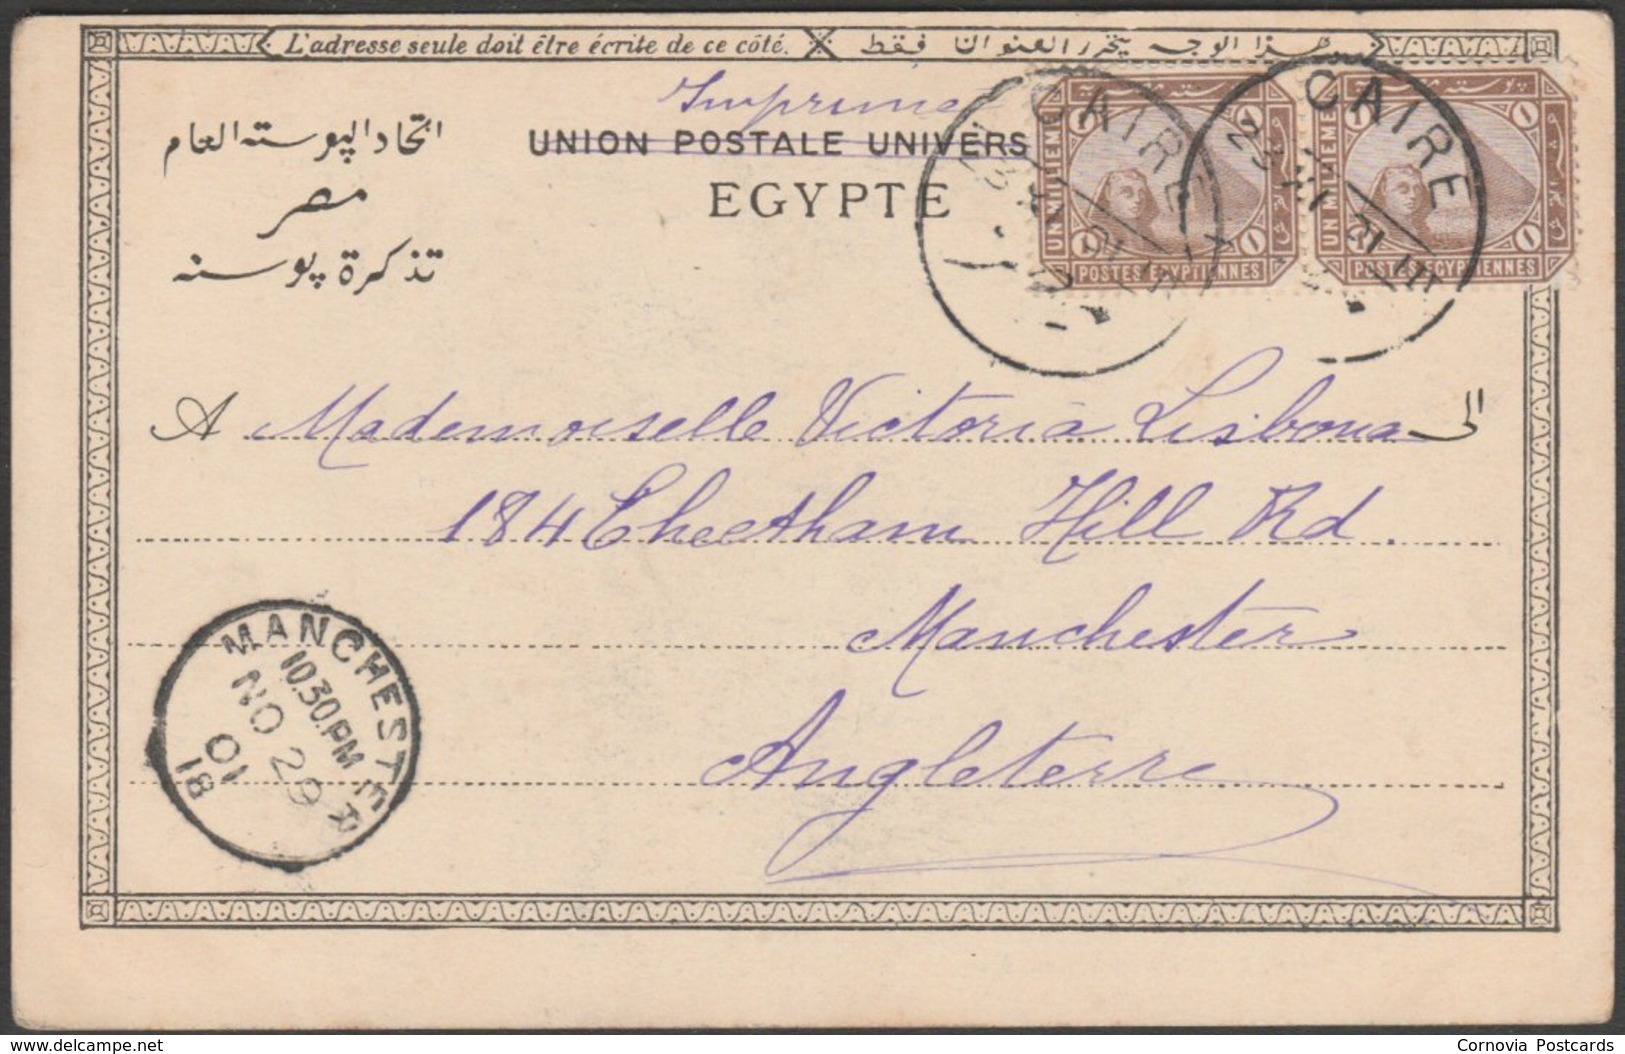 L'adresse seule doit être écrite de ce côté. هذا الوجه يحرر العنوان فقط
Imprimé
اتحاد البوسته العام
UNION POSTALE UNIVERS
مصر
EGYPTE
تذكرة بوسته
CAIRE
CAIRE
UN MILLIEME
POSTES EGYPTIENNES
UN MILLIEME
POSTES EGYPTIENNES
A Mademoiselle Victoria Lisbona الى
184 Cheetham Hill Rd.
Manchester
Angleterre
MANCHESTER
10.30 PM
NO 29
01
18
delcampe.net
Cornovia Postcards